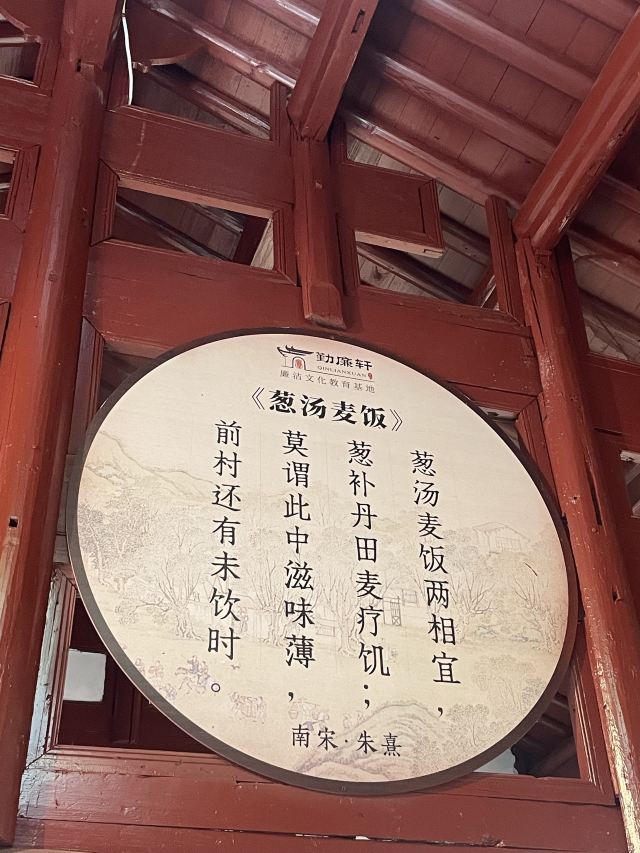 勤廉轩
QINLIANXUAN
廉洁文化教育基地
《葱汤麦饭》
葱汤麦饭两相宜，
葱补丹田麦疗饥；
莫谓此中滋味薄，
前村还有未饮时。
南宋·朱熹